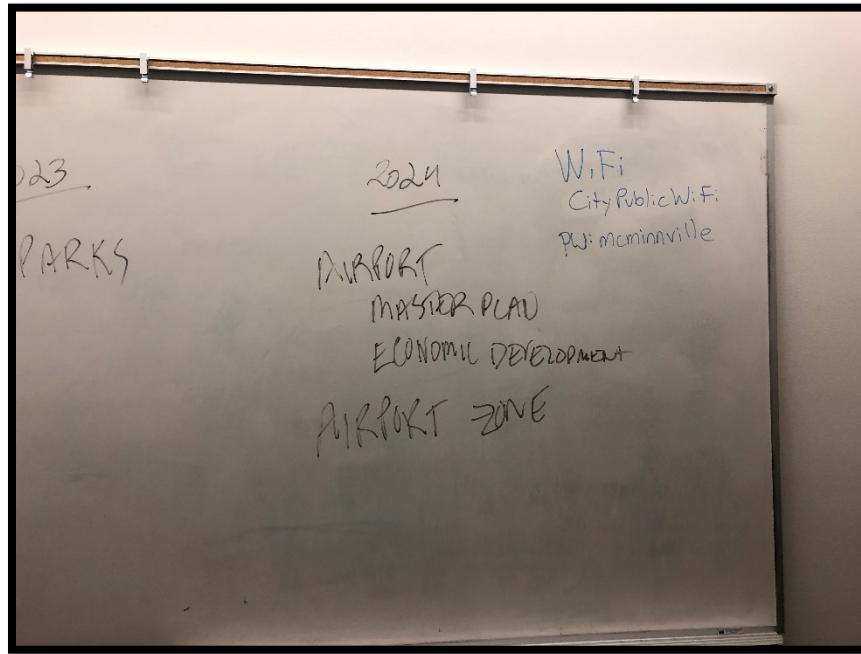 023
PARKS
2024
AIRPORT
MASTER PLAN
ECONOMIC DEVELOPMENT
AIRPORT ZONE
WiFi
CityPublicWiFi
PW: mcminnville